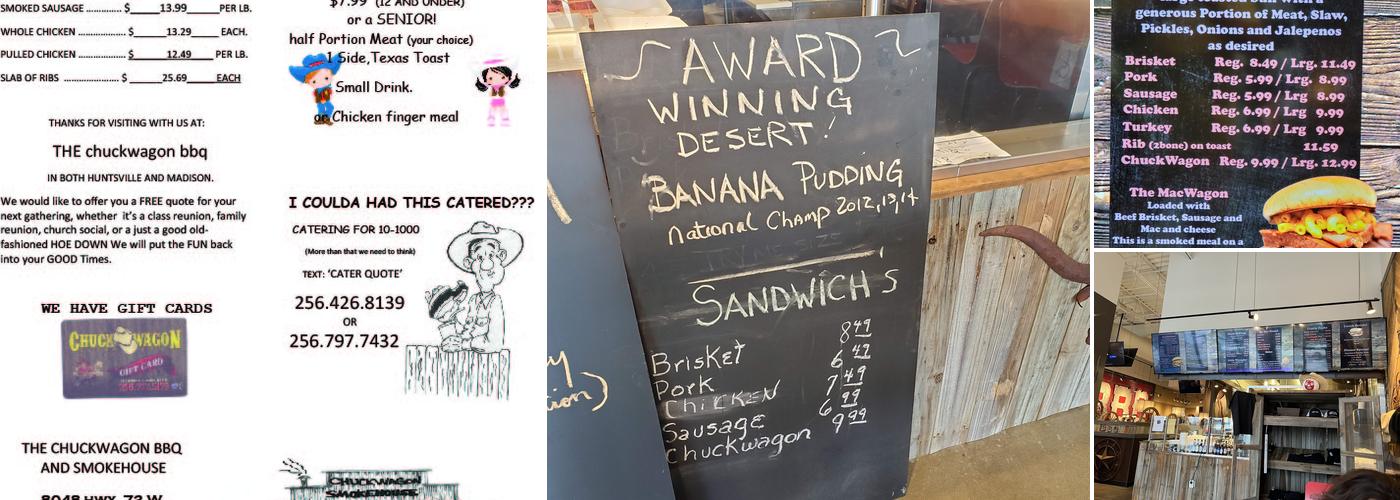 SMOKED SAUSAGE .............. $_____13.99_____PER LB.
WHOLE CHICKEN .................. $_____13.29_____ EACH.
PULLED CHICKEN .................. $_____12.49_____ PER LB.
SLAB OF RIBS ..................... $_____25.69_____EACH
THANKS FOR VISITING WITH US AT:
THE chuckwagon bbq
IN BOTH HUNTSVILLE AND MADISON.
We would like to offer you a FREE quote for your
next gathering, whether it's a class reunion, family
reunion, church social, or a just a good old-
fashioned HOE DOWN We will put the FUN back
into your GOOD Times.
WE HAVE GIFT CARDS
CHUCK WAGON
GIFT CARD
THE CHUCKWAGON BBQ
AND SMOKEHOUSE
8048 HWY. 72 W
$7.99 (12 AND UNDER)
or a SENIOR!
half Portion Meat (your choice)
1 Side,Texas Toast
Small Drink.
or Chicken finger meal
I COULDA HAD THIS CATERED???
CATERING FOR 10-1000
(More than that we need to think)
TEXT: 'CATER QUOTE'
256.426.8139
OR
256.797.7432
CHUCKWAGON
SMOKEHOUSE
AWARD
WINNING
DESERT!
BANANA PUDDING
National Champ 2012,13,14
SANDWICH'S
Brisket 8 49
Pork 6 49
Chicken 7 49
Sausage 6 99
Chuckwagon 9 99
generous Portion of Meat, Slaw,
Pickles, Onions and Jalepenos
as desired
Brisket Reg. 8.49 / Lrg. 11.49
Pork Reg. 5.99 / Lrg. 8.99
Sausage Reg. 5.99 / Lrg 8.99
Chicken Reg. 6.99 / Lrg 9.99
Turkey Reg. 6.99 / Lrg. 9.99
Rib (2bone) on toast 11.59
ChuckWagon Reg. 9.99 / Lrg. 12.99
The MacWagon
Loaded with
Beef Brisket, Sausage and
Mac and cheese
This is a smoked meal on a